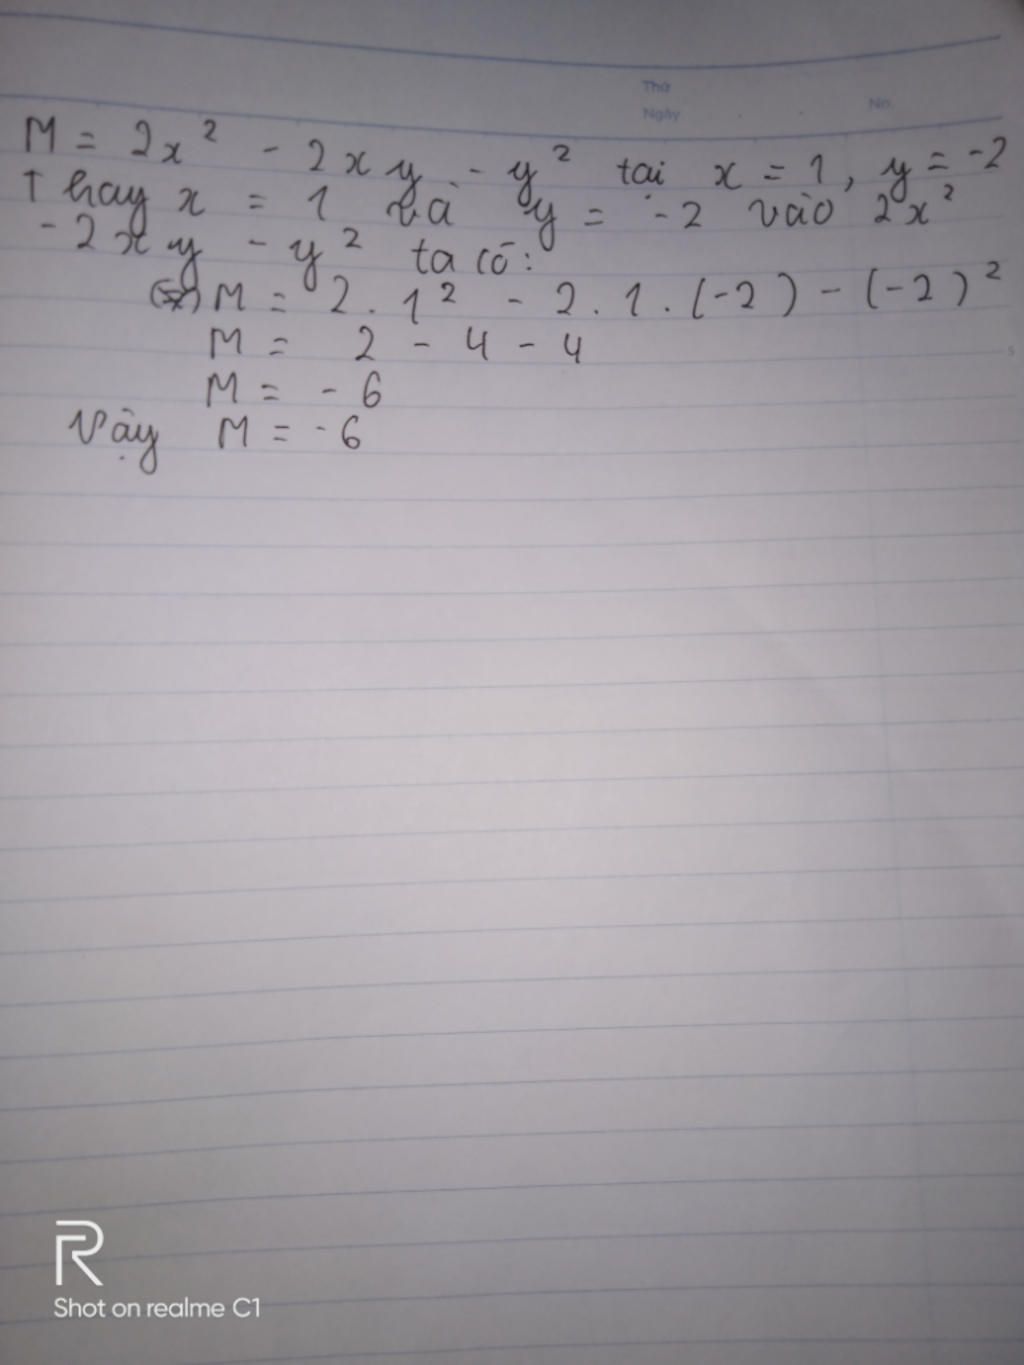 Thứ
Ngày
No.
M = 2x² - 2xy - y² tại x = 1, y = -2
Thay x = 1 và y = -2 vào 2x²
- 2xy - y² ta có:
M = 2 . 1² - 2 . 1 . (-2) - (-2)²
M = 2 - 4 - 4
M = - 6
Vậy M = - 6
5
R
Shot on realme C1